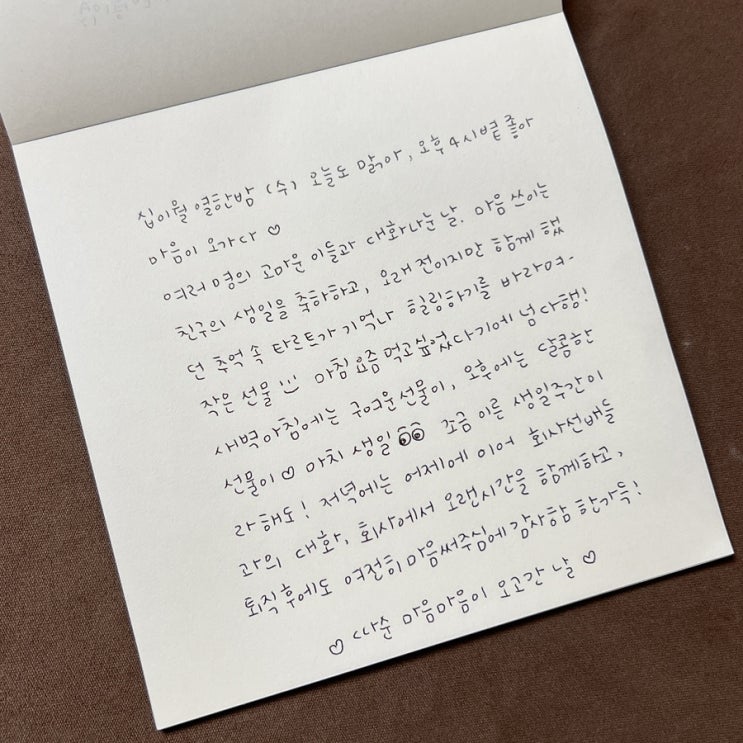 십이월 열한밤 (수) 오늘도 맑아, 오후 4시볕 좋아
마음이 오가다 ♡
여러 명의 고마운 이들과 대화나눈 날. 마음 쓰이는
친구의 생일을 축하하고, 오래 전이지만 함께 했
던 추억 속 타르트가 기억나 힐링하기를 바라며-
작은 선물 :) 마침 요즘 먹고싶었다기에 넘 다행!
새벽아침에는 귀여운선물이, 오후에는 달콤한
선물이 ♡ 마치 생일 👀 조금 이른 생일주간이
라 해도! 저녁에는 어제에 이어 회사선배들
과의 대화, 회사에서 오랜시간을 함께하고,
퇴직후에도 여전히 마음써주심에 감사함 한가득!
♡ 따순 마음마음이 오고간 날 ♡